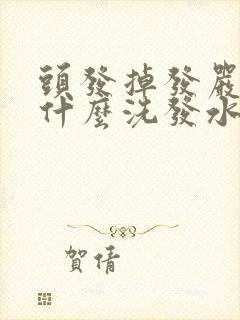 頭發掉發嚴
什麼洗發水
賀倩